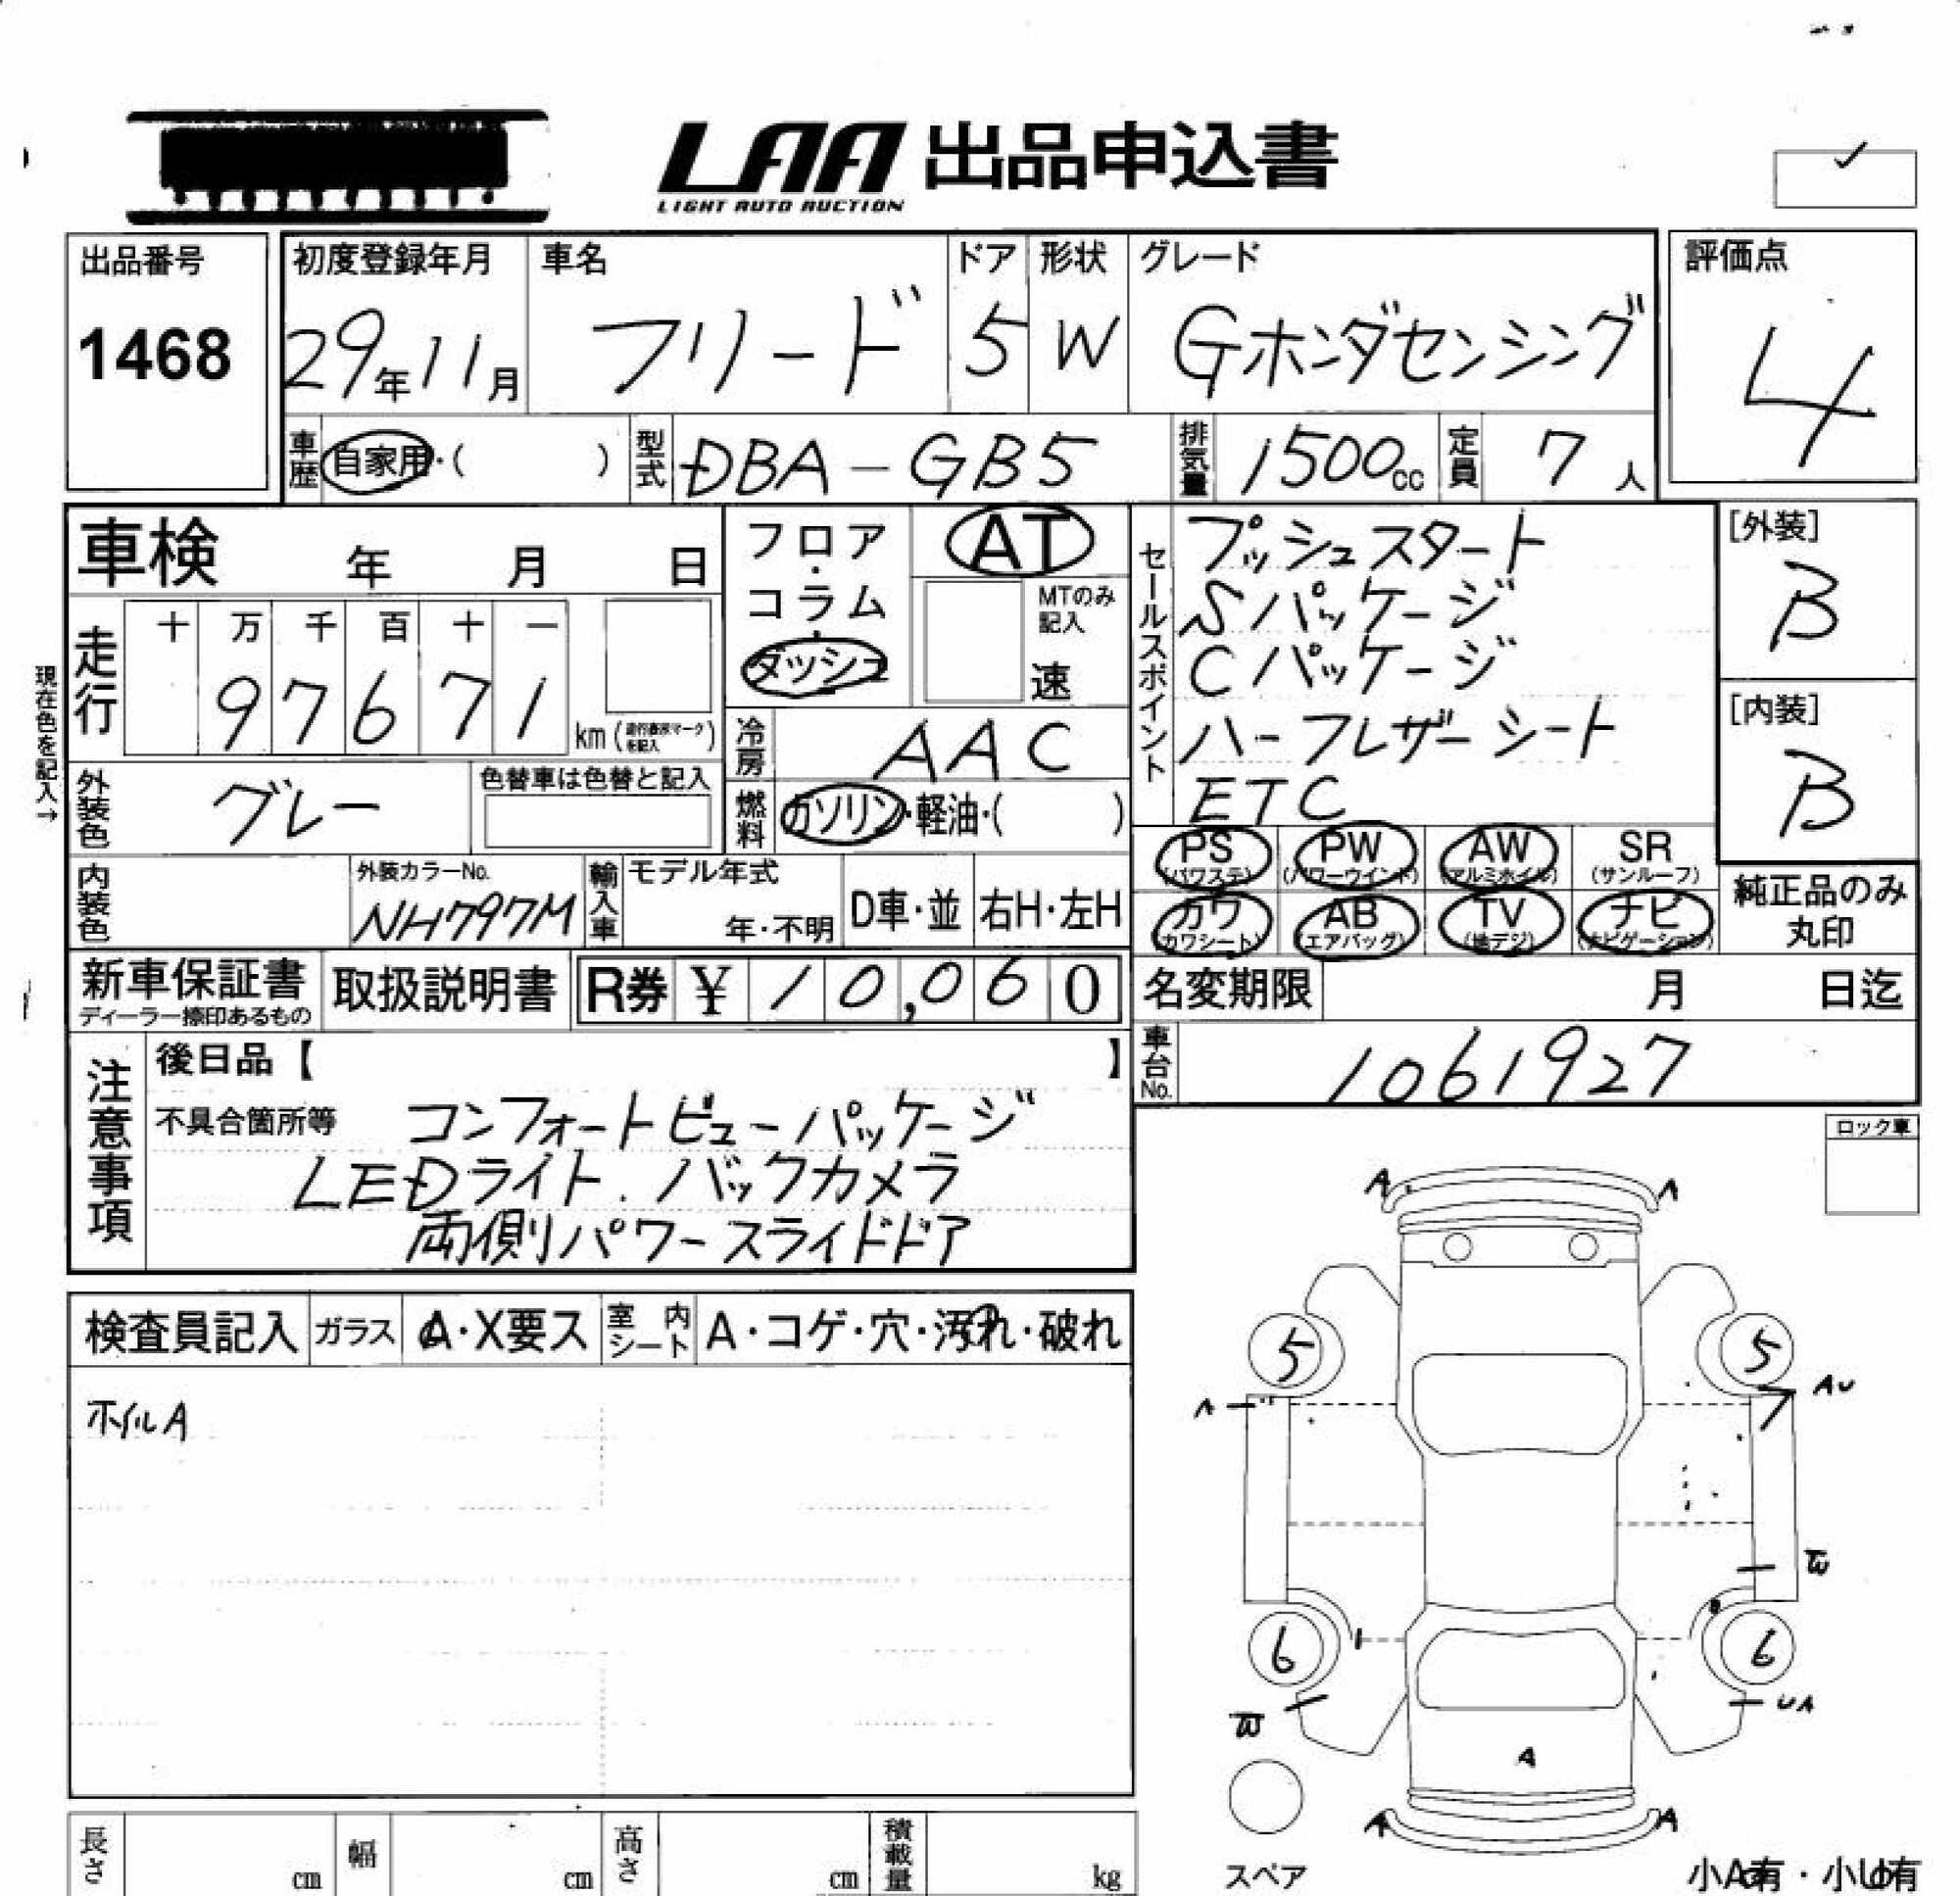 LAA 出品申込書
LIGHT AUTO AUCTION
出品番号
1468
初度登録年月
29年11月
車名
フリード
ドア
5
形状
W
グレード
Gホンダセンシング
評価点
4
車歴
自家用・( )
型式
DBA-GB5
排気量
1500cc
定員
7人
車検 年 月 日
フロア・コラム・ダッシュ
AT
MTのみ記入
速
セールスポイント
プッシュスタート
Sパッケージ
Cパッケージ
ハーフレザーシート
ETC
[外装]
B
[内装]
B
現在色を記入→
走行
十 万 千 百 十 一
9 7 6 7 1
km(走行表示マークを記入)
冷房
AAC
外装色
グレー
色替車は色替と記入
燃料
ガソリン・軽油・( )
PS (パワステ)
PW (パワーウインド)
AW (アルミホイル)
SR (サンルーフ)
カワ (カワシート)
AB (エアバッグ)
TV (地デジ)
ナビ (ナビゲーション)
純正品のみ丸印
内装色
外装カラーNo.
NH797M
輸入車
モデル年式
年・不明
D車・並
右H・左H
新車保証書
ディーラー捺印あるもの
取扱説明書
R券 ¥ 10,060
名変期限 月 日迄
車台No.
1061927
注意事項
後日品【 】
不具合箇所等
コンフォートビューパッケージ
LEDライト.バックカメラ
両側パワースライドドア
ロック車
検査員記入
ガラス
A・X要ス
室内シート
A・コゲ・穴・汚れ・破れ
ホイルA
A A
5 5
A AU
W
6 6
W UA
A
A A
スペア
小A有・小U有
長さ cm
幅 cm
高さ cm
積載量 kg